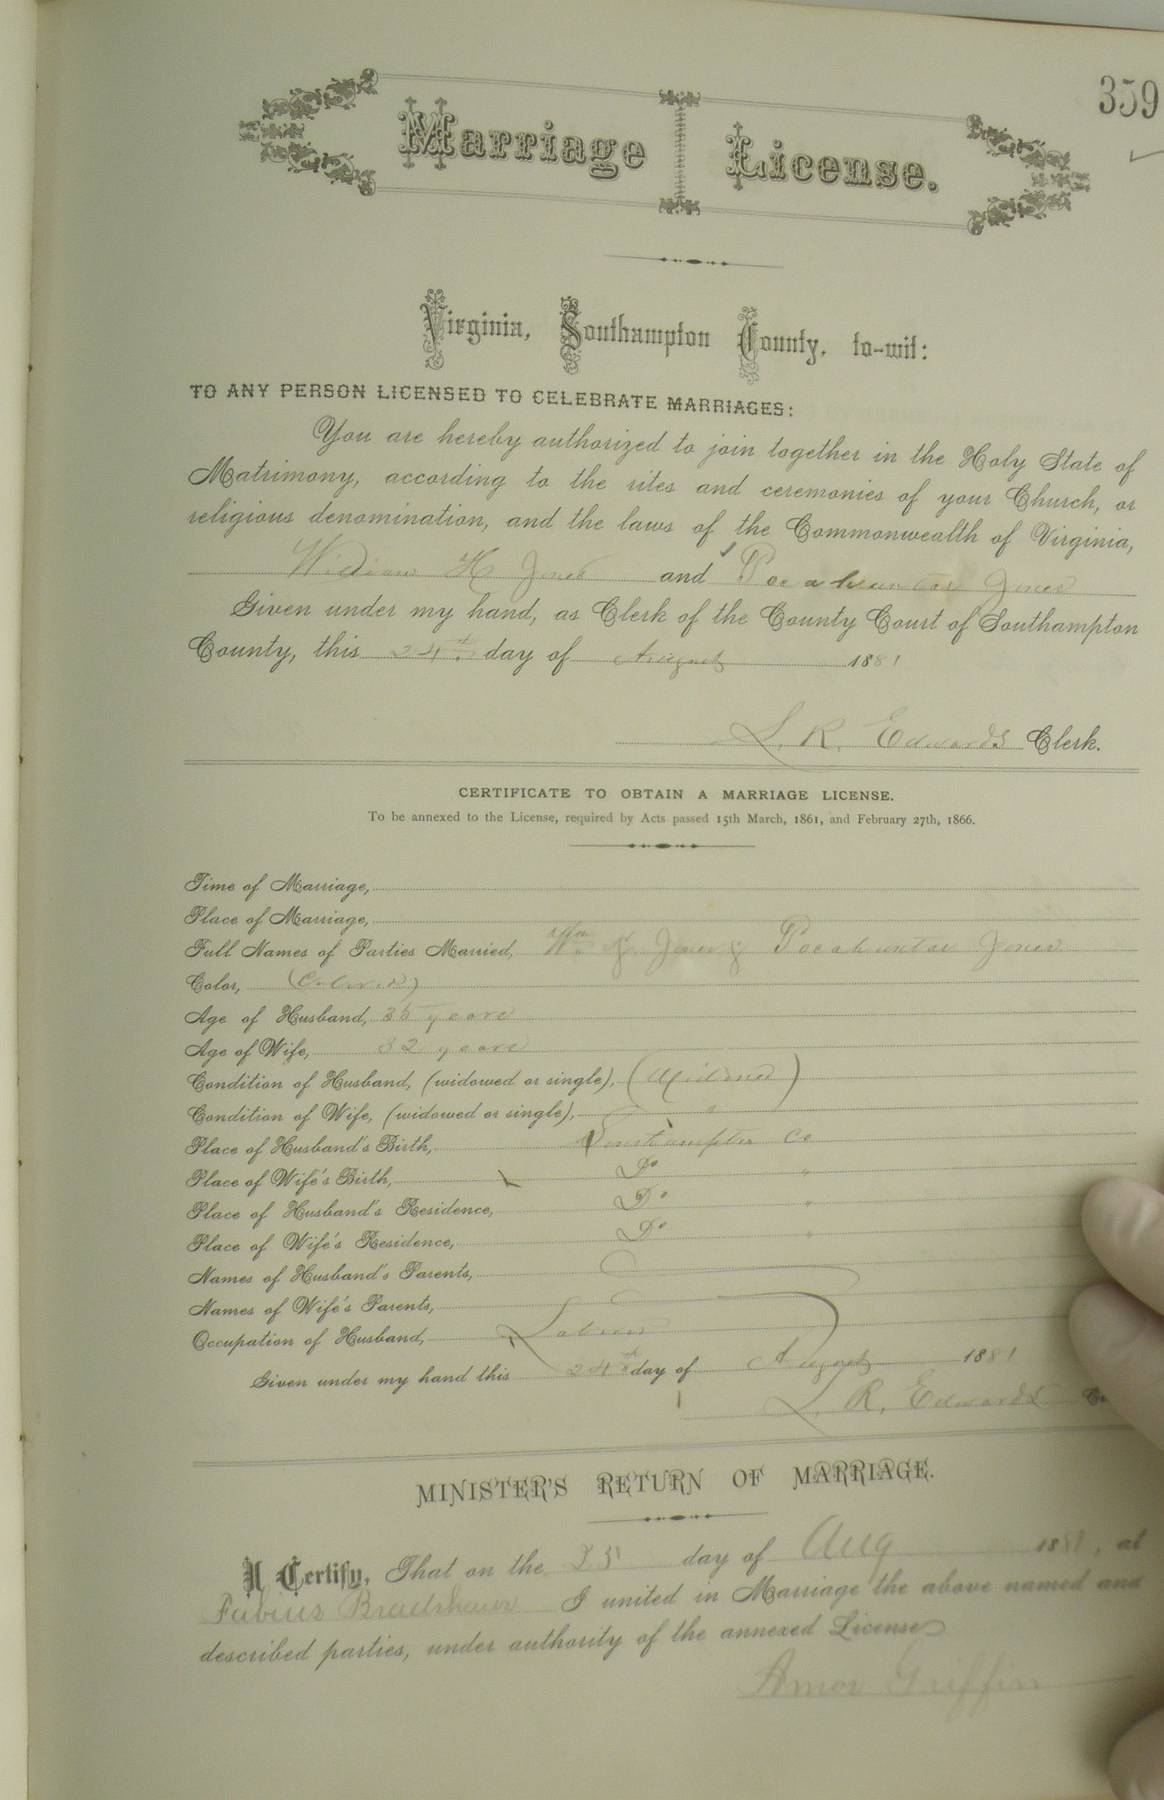 359
Marriage License.
Virginia, Southampton County, to-wit:
TO ANY PERSON LICENSED TO CELEBRATE MARRIAGES:
You are hereby authorized to join together in the Holy State of
Matrimony, according to the rites and ceremonies of your Church, or
religious denomination, and the laws of the Commonwealth of Virginia,
William H Jones and Pocahuntas Jones
Given under my hand, as Clerk of the County Court of Southampton
County, this 24th day of August 1881
L. R. Edwards Clerk.
CERTIFICATE TO OBTAIN A MARRIAGE LICENSE.
To be annexed to the License, required by Acts passed 15th March, 1861, and February 27th, 1866.
Time of Marriage,
Place of Marriage,
Full Names of Parties Married, Wm H. Jones & Pocahuntas Jones
Color, (Colored)
Age of Husband, 35 years
Age of Wife, 32 years
Condition of Husband, (widowed or single), (Widowed)
Condition of Wife, (widowed or single), "
Place of Husband's Birth, Southampton Co
Place of Wife's Birth, Do "
Place of Husband's Residence, Do "
Place of Wife's Residence, Do "
Names of Husband's Parents,
Names of Wife's Parents,
Occupation of Husband, Laborer
Given under my hand this 24th day of August 1881
L. R. Edwards
MINISTER'S RETURN OF MARRIAGE.
I Certify, That on the 25 day of Aug 1881, at
Fabius Bradshaws I united in Marriage the above named and
described parties, under authority of the annexed License
Amos Griffin